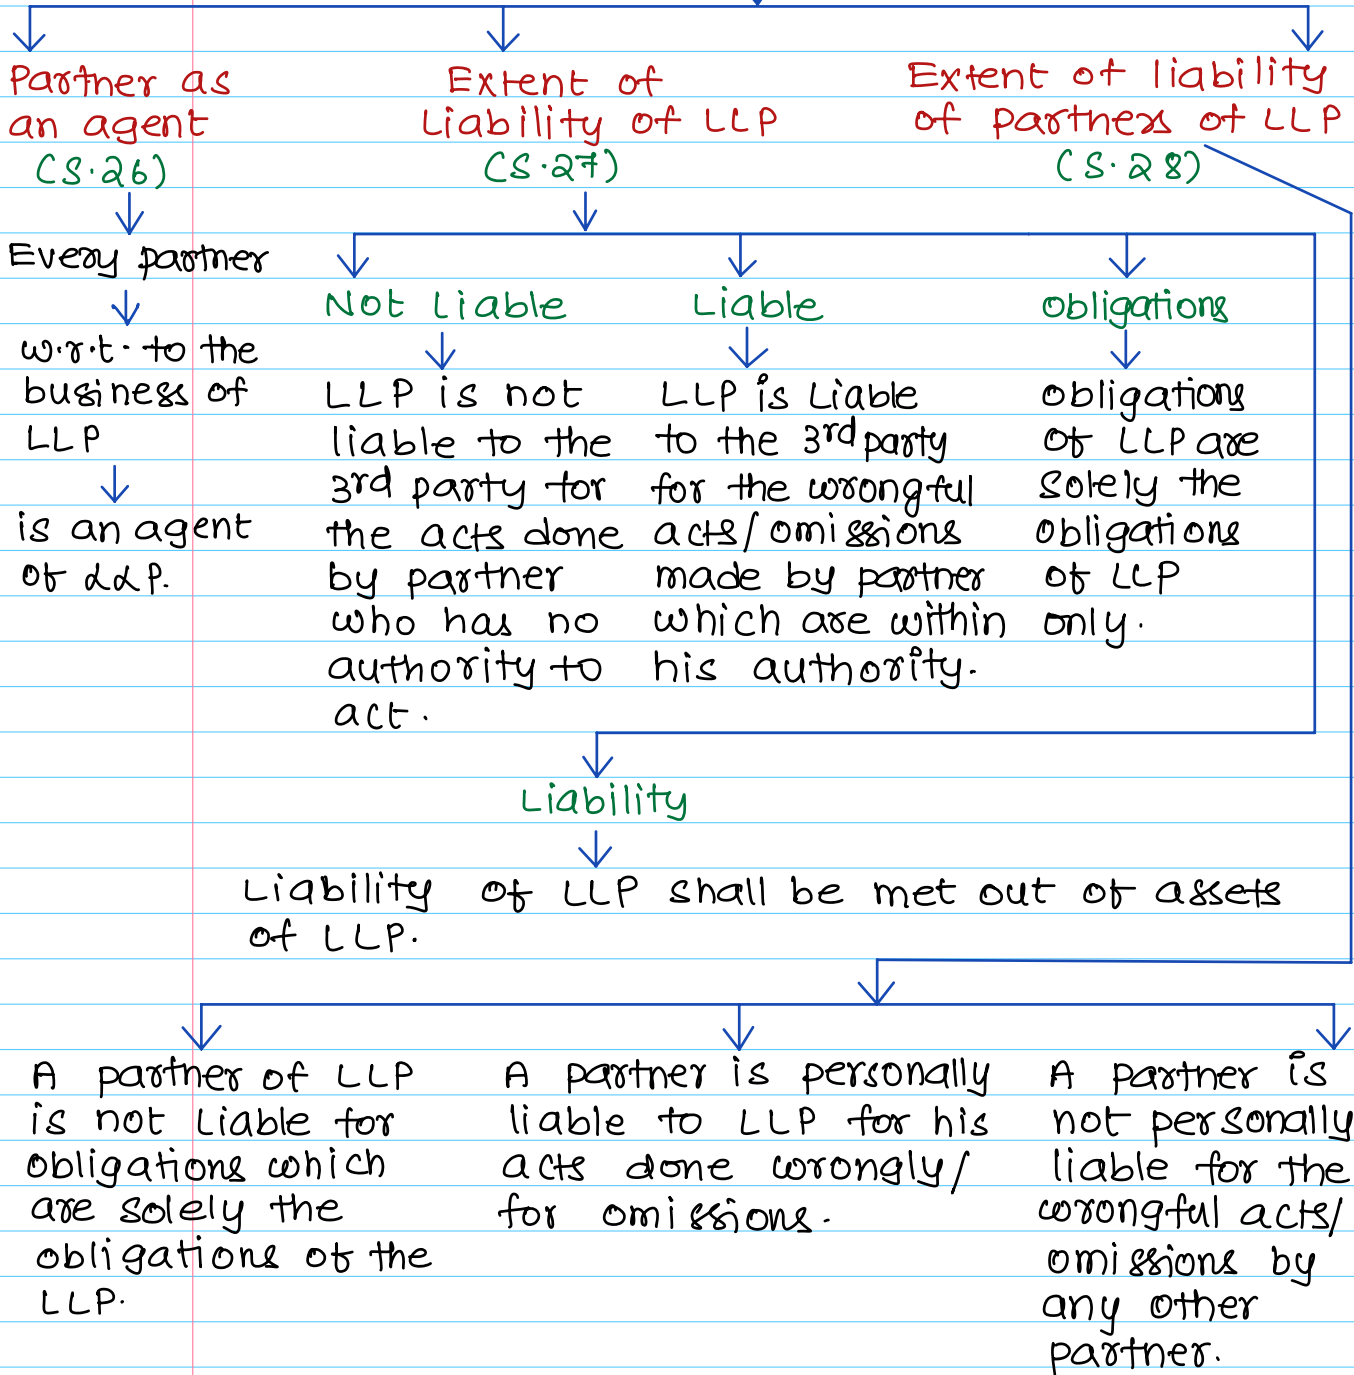 Partner as
an agent
(S.26)
Every partner
w.r.t. to the
business of
LLP
is an agent
of LLP.
Extent of
Liability of LLP
(S.27)
Not Liable
LLP is not
liable to the
3rd party for
the acts done
by partner
who has no
authority to
act.
Liable
LLP is Liable
to the 3rd party
for the wrongful
acts/omissions
made by partner
which are within
his authority.
Obligations
Obligations
of LLP are
Solely the
Obligations
of LLP
only.
Liability
Liability of LLP shall be met out of assets
of LLP.
Extent of liability
of partners of LLP
(S.28)
A partner of LLP
is not Liable for
obligations which
are solely the
obligations of the
LLP.
A partner is personally
liable to LLP for his
acts done wrongly/
for omissions.
A partner is
not personally
liable for the
wrongful acts/
omissions by
any other
partner.